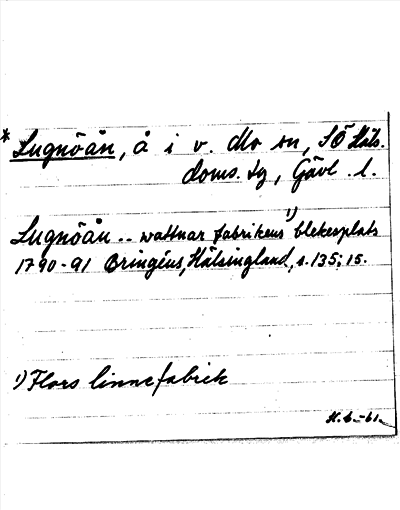 * Lugnöån, å i v. Mo sn, SÖ Häls.
doms. tg, Gävl. l.
Lugnöån .. wattnar fabrikens ¹) blekesplats
1790-91 Bringéus, Hälsingland, s. 135; 15.
¹) Flors linnefabrik
H. b. -61.